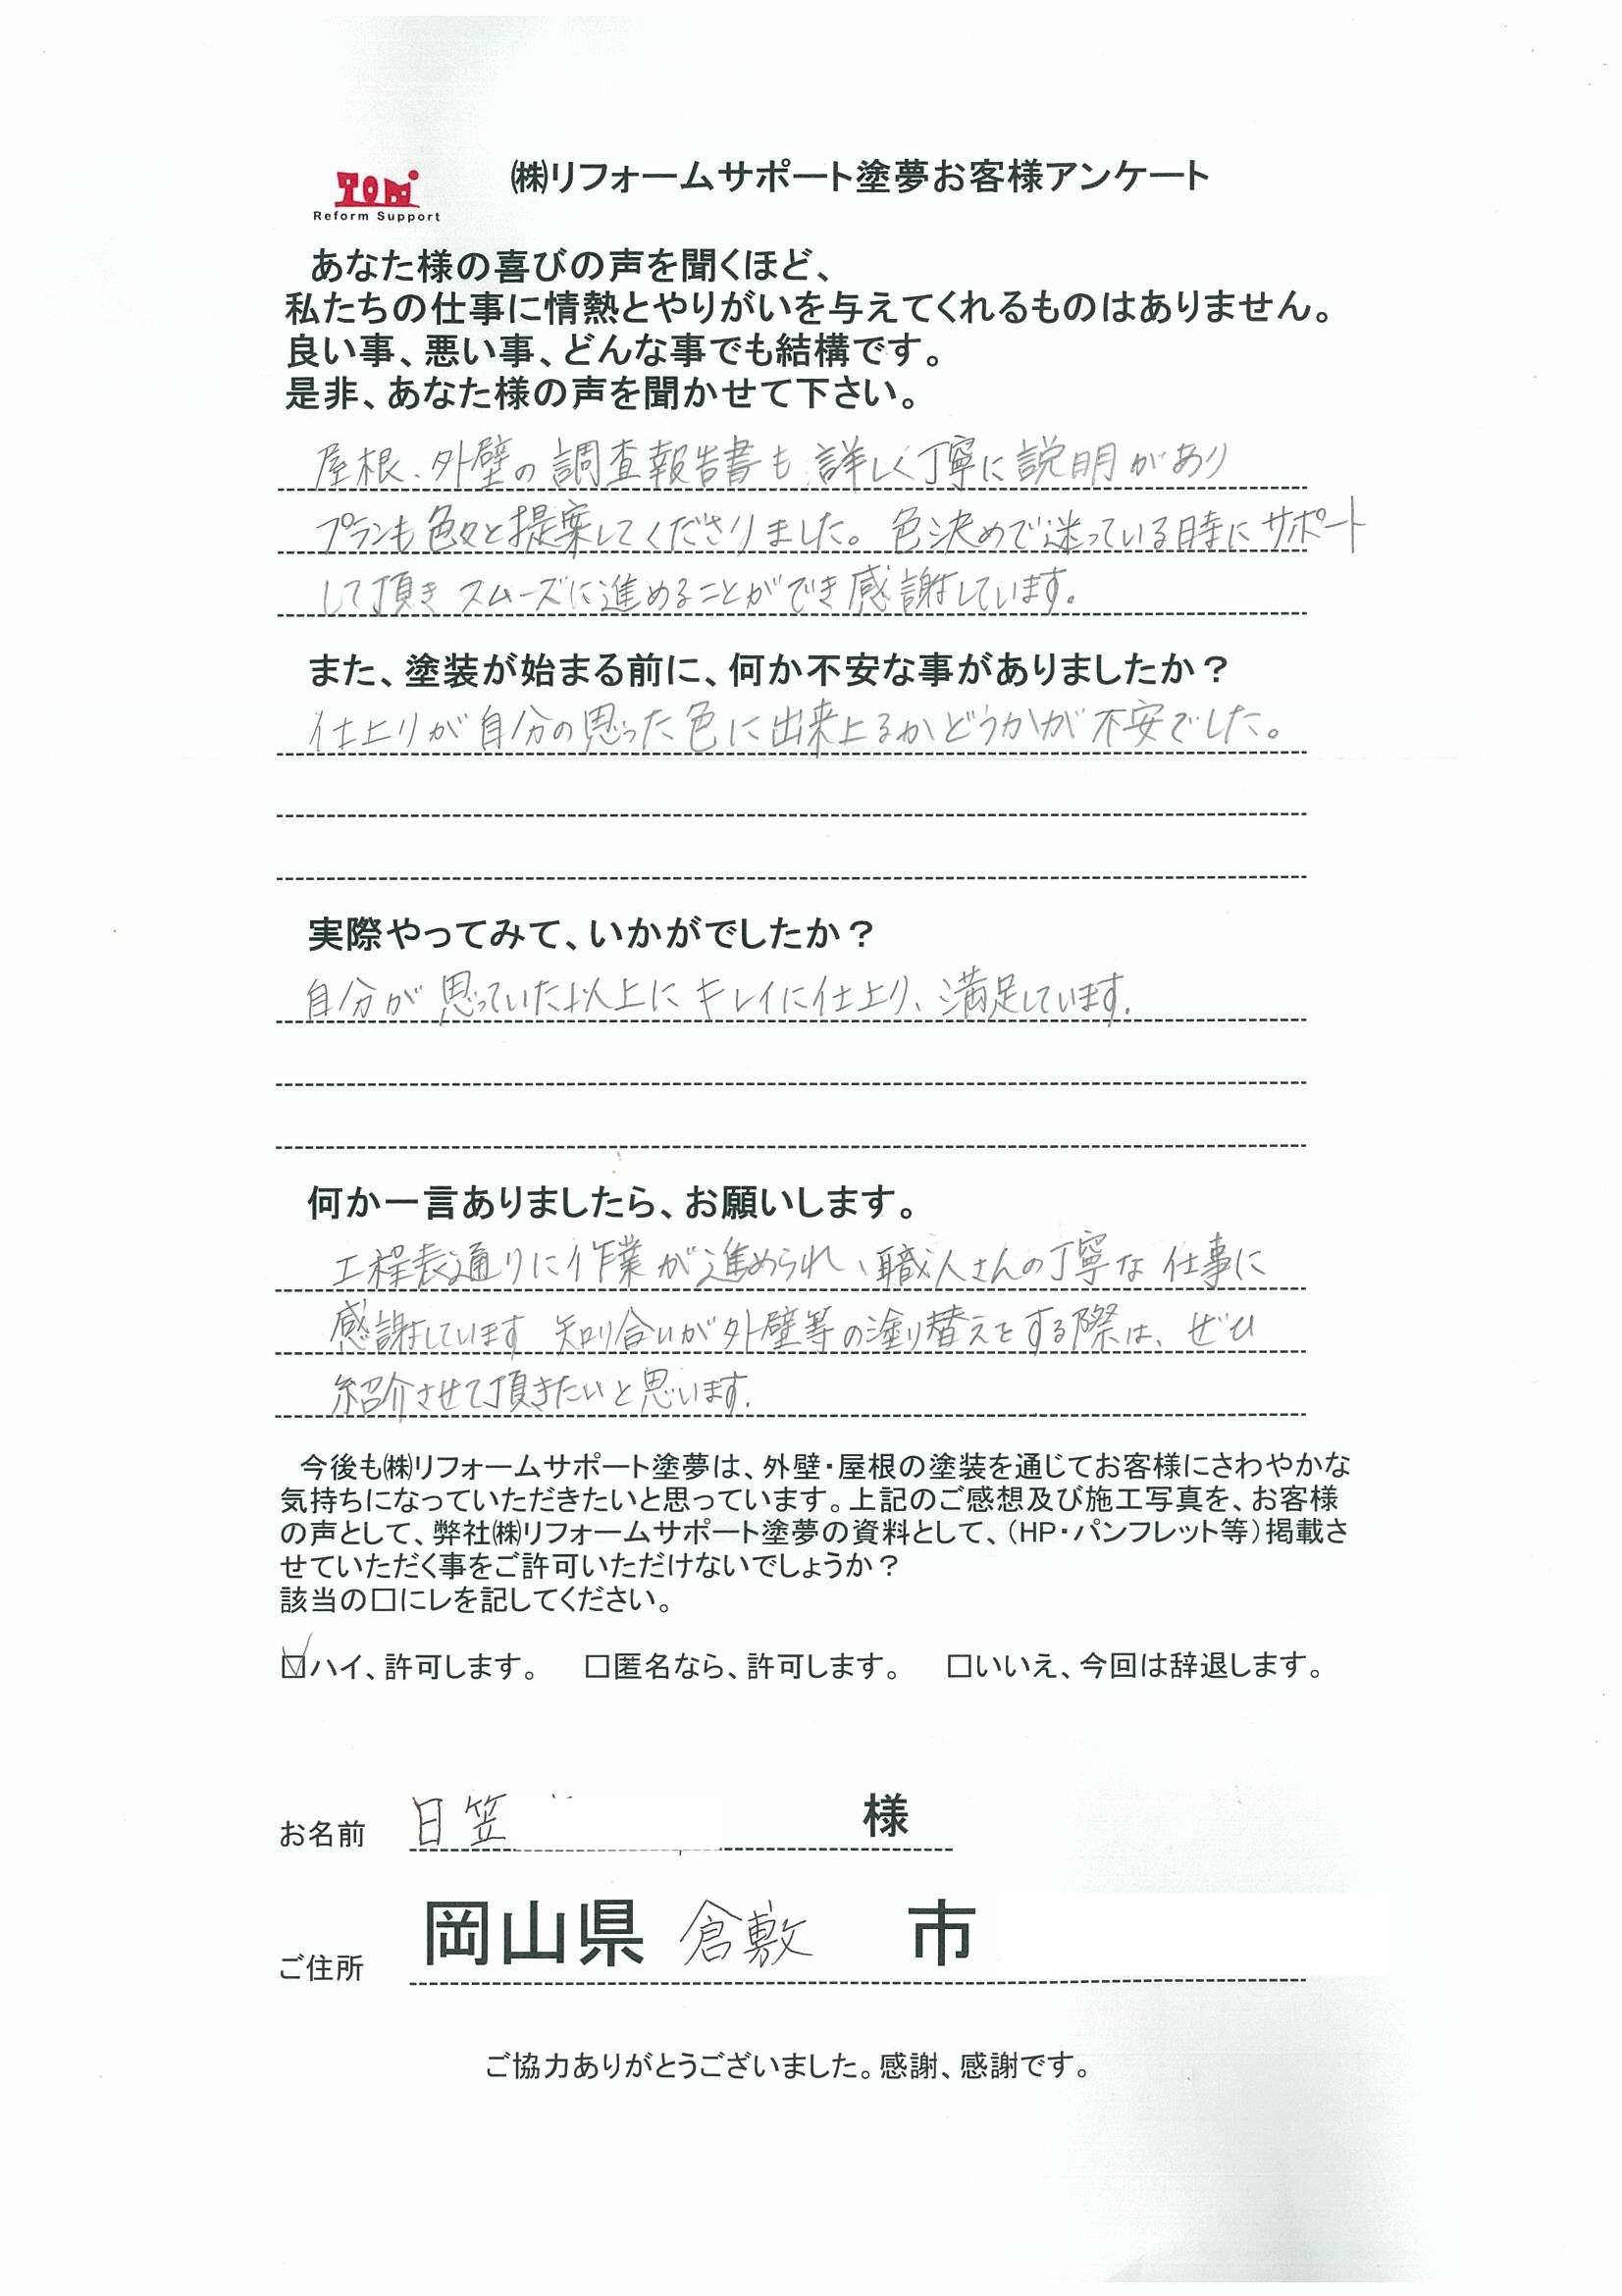 TOM
Reform Support
㈱リフォームサポート塗夢お客様アンケート
あなた様の喜びの声を聞くほど、
私たちの仕事に情熱とやりがいを与えてくれるものはありません。
良い事、悪い事、どんな事でも結構です。
是非、あなた様の声を聞かせて下さい。
屋根、外壁の調査報告書も詳しく丁寧に説明があり
プランも色々と提案してくださりました。色決めで迷っている時にサポート
して頂きスムーズに進めることができ感謝しています。
また、塗装が始まる前に、何か不安な事がありましたか？
仕上りが自分の思った色に出来上るかどうかが不安でした。
実際やってみて、いかがでしたか？
自分が思っていた以上にキレイに仕上り、満足しています。
何か一言ありましたら、お願いします。
工程表通りに作業が進められ、職人さんの丁寧な仕事に
感謝しています 知り合いが外壁等の塗り替えをする際は、ぜひ
紹介させて頂きたいと思います。
今後も㈱リフォームサポート塗夢は、外壁・屋根の塗装を通じてお客様にさわやかな
気持ちになっていただきたいと思っています。上記のご感想及び施工写真を、お客様
の声として、弊社㈱リフォームサポート塗夢の資料として、（HP・パンフレット等）掲載さ
せていただく事をご許可いただけないでしょうか？
該当の□にレを記してください。
☑ハイ、許可します。 □匿名なら、許可します。 □いいえ、今回は辞退します。
お名前 日笠 様
ご住所 岡山県 倉敷 市
ご協力ありがとうございました。感謝、感謝です。